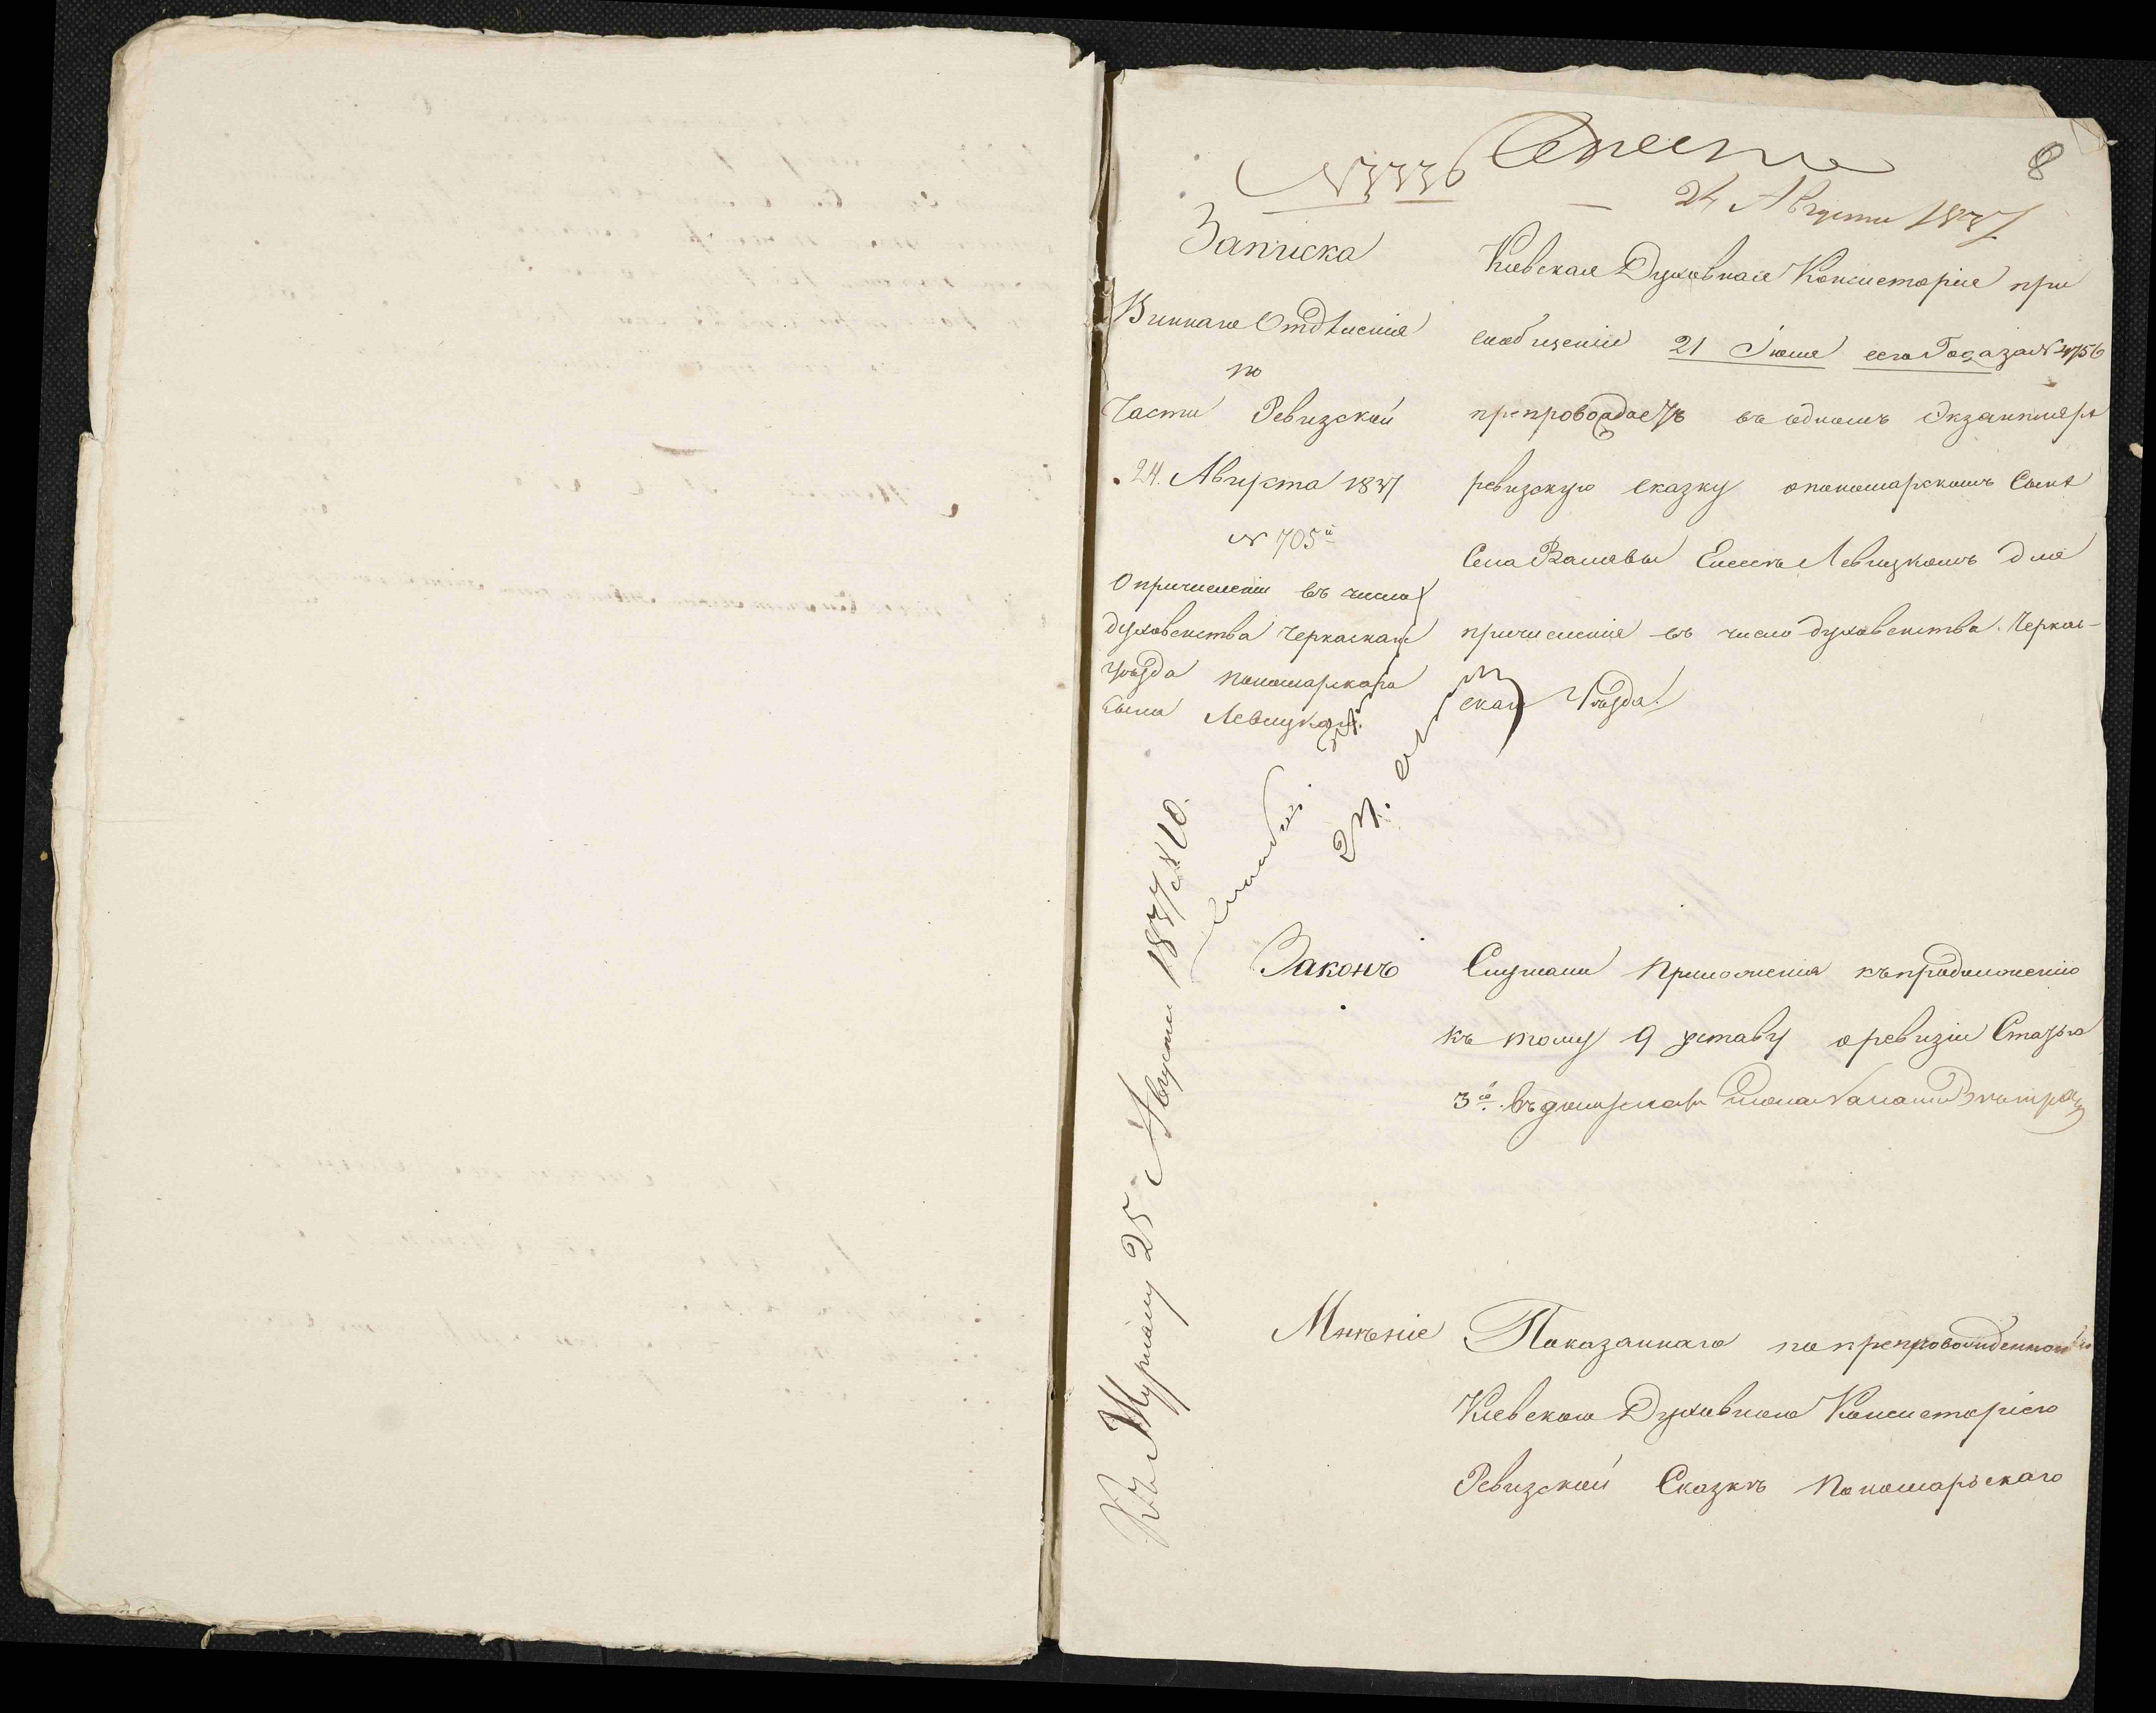 8
24 Августа 1837
Записка
Виннаго Отдѣленія
по
Части Ревизской
24. Августа 1837
№ 705й
О причисленіи въ число
духовенства Черкаскаго
уѣзда пономарскаго
сына Левицкаго
Кіевская Духовная Консисторія при
сообщеніи 21 Іюня сего Года за № 4756
препровождаетъ въ одномъ Экземплярѣ
ревизскую сказку о пономарскомъ Сынѣ
Села Валявы Левицкомъ для
причисленія въ число духовенства Черкас-
скаго Уѣзда.
Къ Журналу 25 Августа 1837 года
Законъ
Слушали Приложенія къ продолженію
къ тому 9 уставу о ревизіи Статью
3ю
Мнѣніе
Показаннаго по препровожденной
Кіевскою Духовною Консисторіею
Ревизской Сказкѣ Пономарьскаго